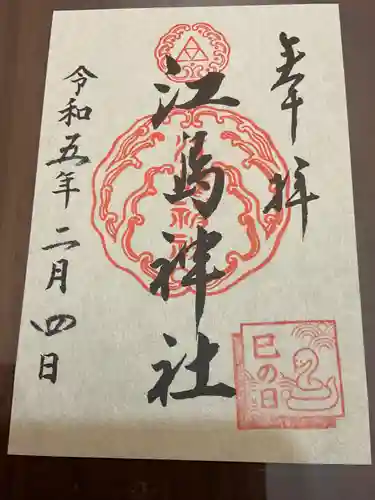 奉拝
江島神社
令和五年二月四日
巳の日